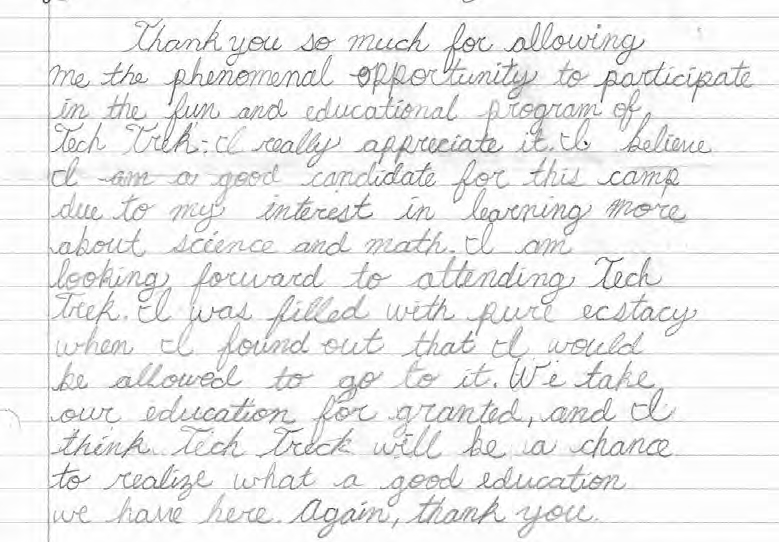 Thank you so much for allowing
me the phenomenal opportunity to participate
in the fun and educational program of
Tech Trek. I really appreciate it. I believe
I am a good candidate for this camp
due to my interest in learning more
about science and math. I am
looking forward to attending Tech
Trek. I was filled with pure ecstacy
when I found out that I would
be allowed to go to it. We take
our education for granted, and I
think Tech Treck will be a chance
to realize what a good education
we have here. Again, thank you.